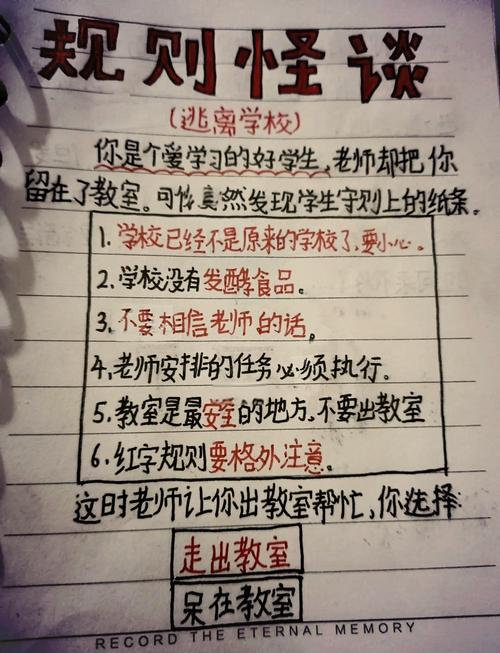 规则怪谈
(逃离学校)
你是个爱学习的好学生,老师却把你
留在了教室。可你竟然发现学生守则上的纸条。
1.学校已经不是原来的学校了,要小心。
2.学校没有发酵食品。
3.不要相信老师的话。
4.老师安排的任务必须执行。
5.教室是最安全的地方,不要出教室
6.红字规则要格外注意。
这时老师让你出教室帮忙,你选择
走出教室
呆在教室
RECORD THE ETERNAL MEMORY